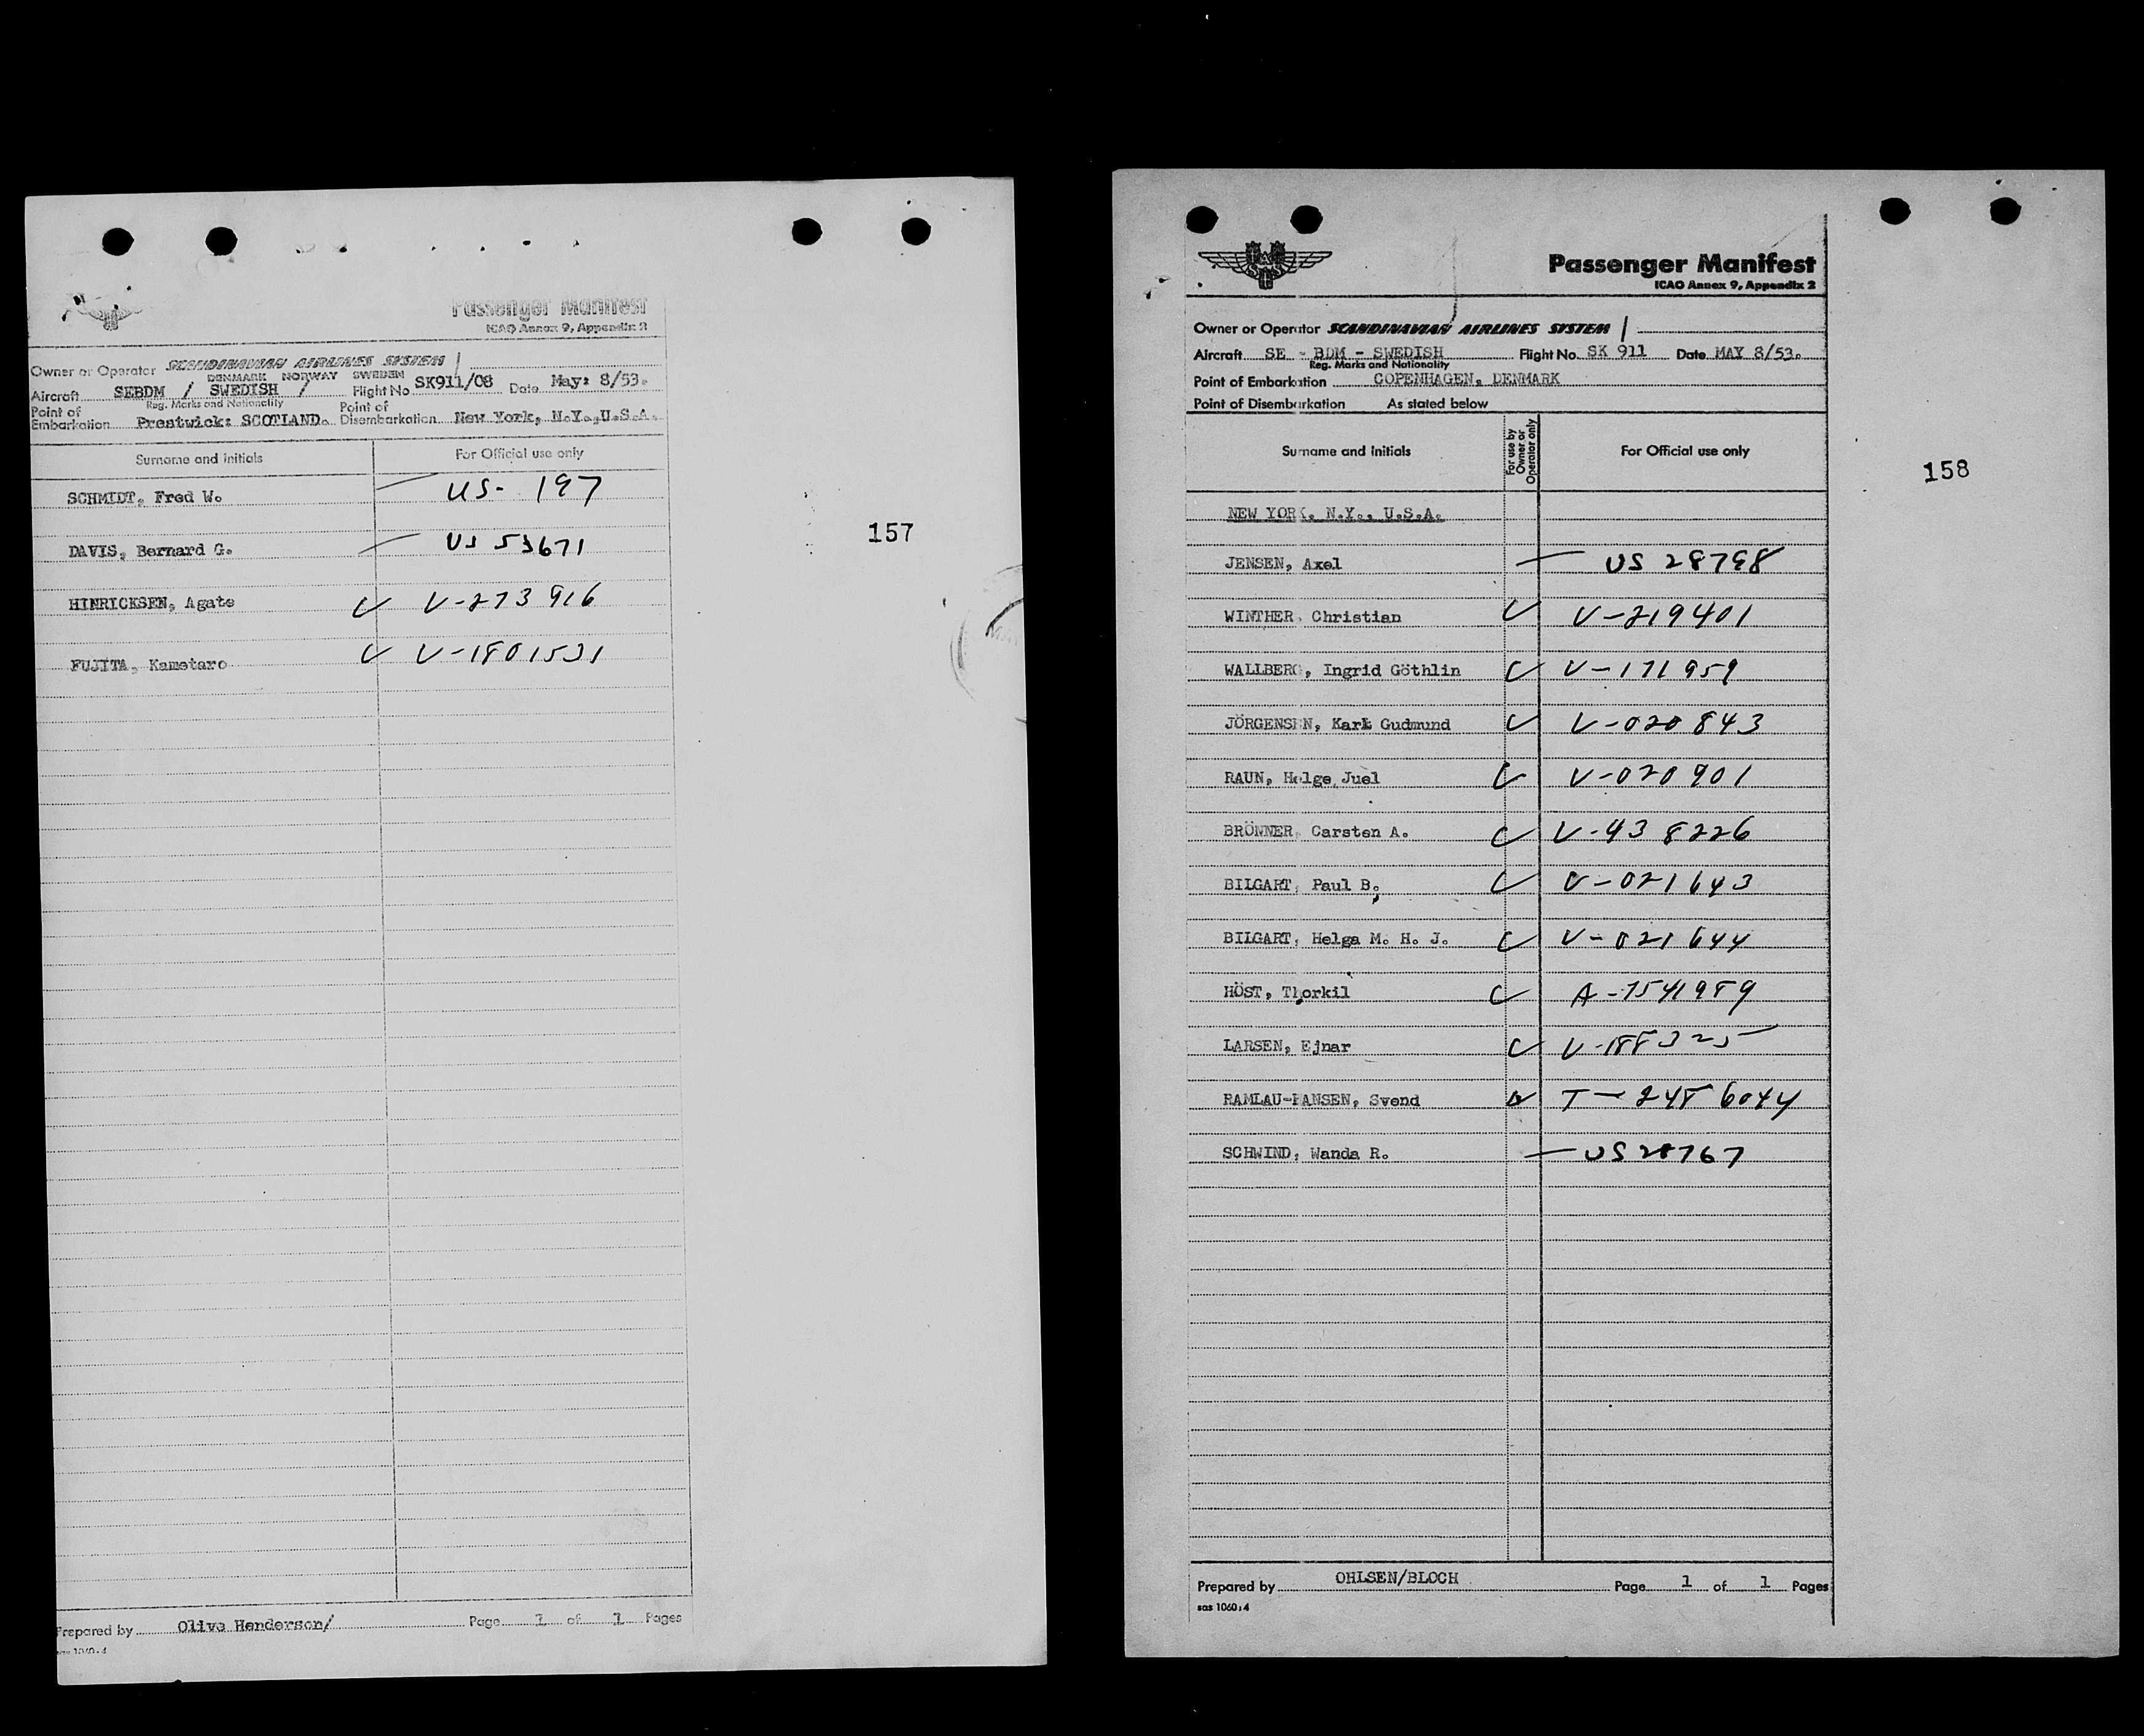 Passenger Manifest
ICAO Annex 9, Appendix 2
Owner or Operator SCANDINAVIAN AIRLINES SYSTEM
DENMARK NORWAY SWEDEN
Aircraft SEBDM / SWEDISH / Flight No SK911/08 Date May: 8/53.
Reg. Marks and Nationality
Point of Embarkation Prestwick: SCOTLAND. Point of Disembarkation New York, N.Y.,U.S.A.
Surname and initials For Official use only
SCHMIDT, Fred W. — US- 197
DAVIS, Bernard G. — US 53671
HINRICKSEN, Agate V-273 916
FUJITA, Kametaro V-1801531
157
Prepared by Olive Henderson/ Page 1 of 1 Pages
Passenger Manifest
ICAO Annex 9, Appendix 2
Owner or Operator SCANDINAVIAN AIRLINES SYSTEM
Aircraft SE - BDM - SWEDISH Flight No. SK 911 Date MAY 8/53.
Reg. Marks and Nationality
Point of Embarkation COPENHAGEN, DENMARK
Point of Disembarkation As stated below
Surname and initials For use by Owner or Operator only For Official use only
158
NEW YORK, N.Y., U.S.A.
JENSEN, Axel — US 28798
WINTHER, Christian V-219401
WALLBERG, Ingrid Göthlin V-171959
JÖRGENSEN, Karl Gudmund V-020 843
RAUN, Helge Juel V-020 901
BRÖNNER, Carsten A. V-438226
BILGART, Paul B. V-021643
BILGART, Helga M. H. J. V-021644
HÖST, Thorkil A-7541989
LARSEN, Ejnar V-188325
RAMLAU-HANSEN, Svend T-248 6044
SCHWIND, Wanda R. — US 28767
Prepared by OHLSEN/BLOCH Page 1 of 1 Pages
sas 1060:4